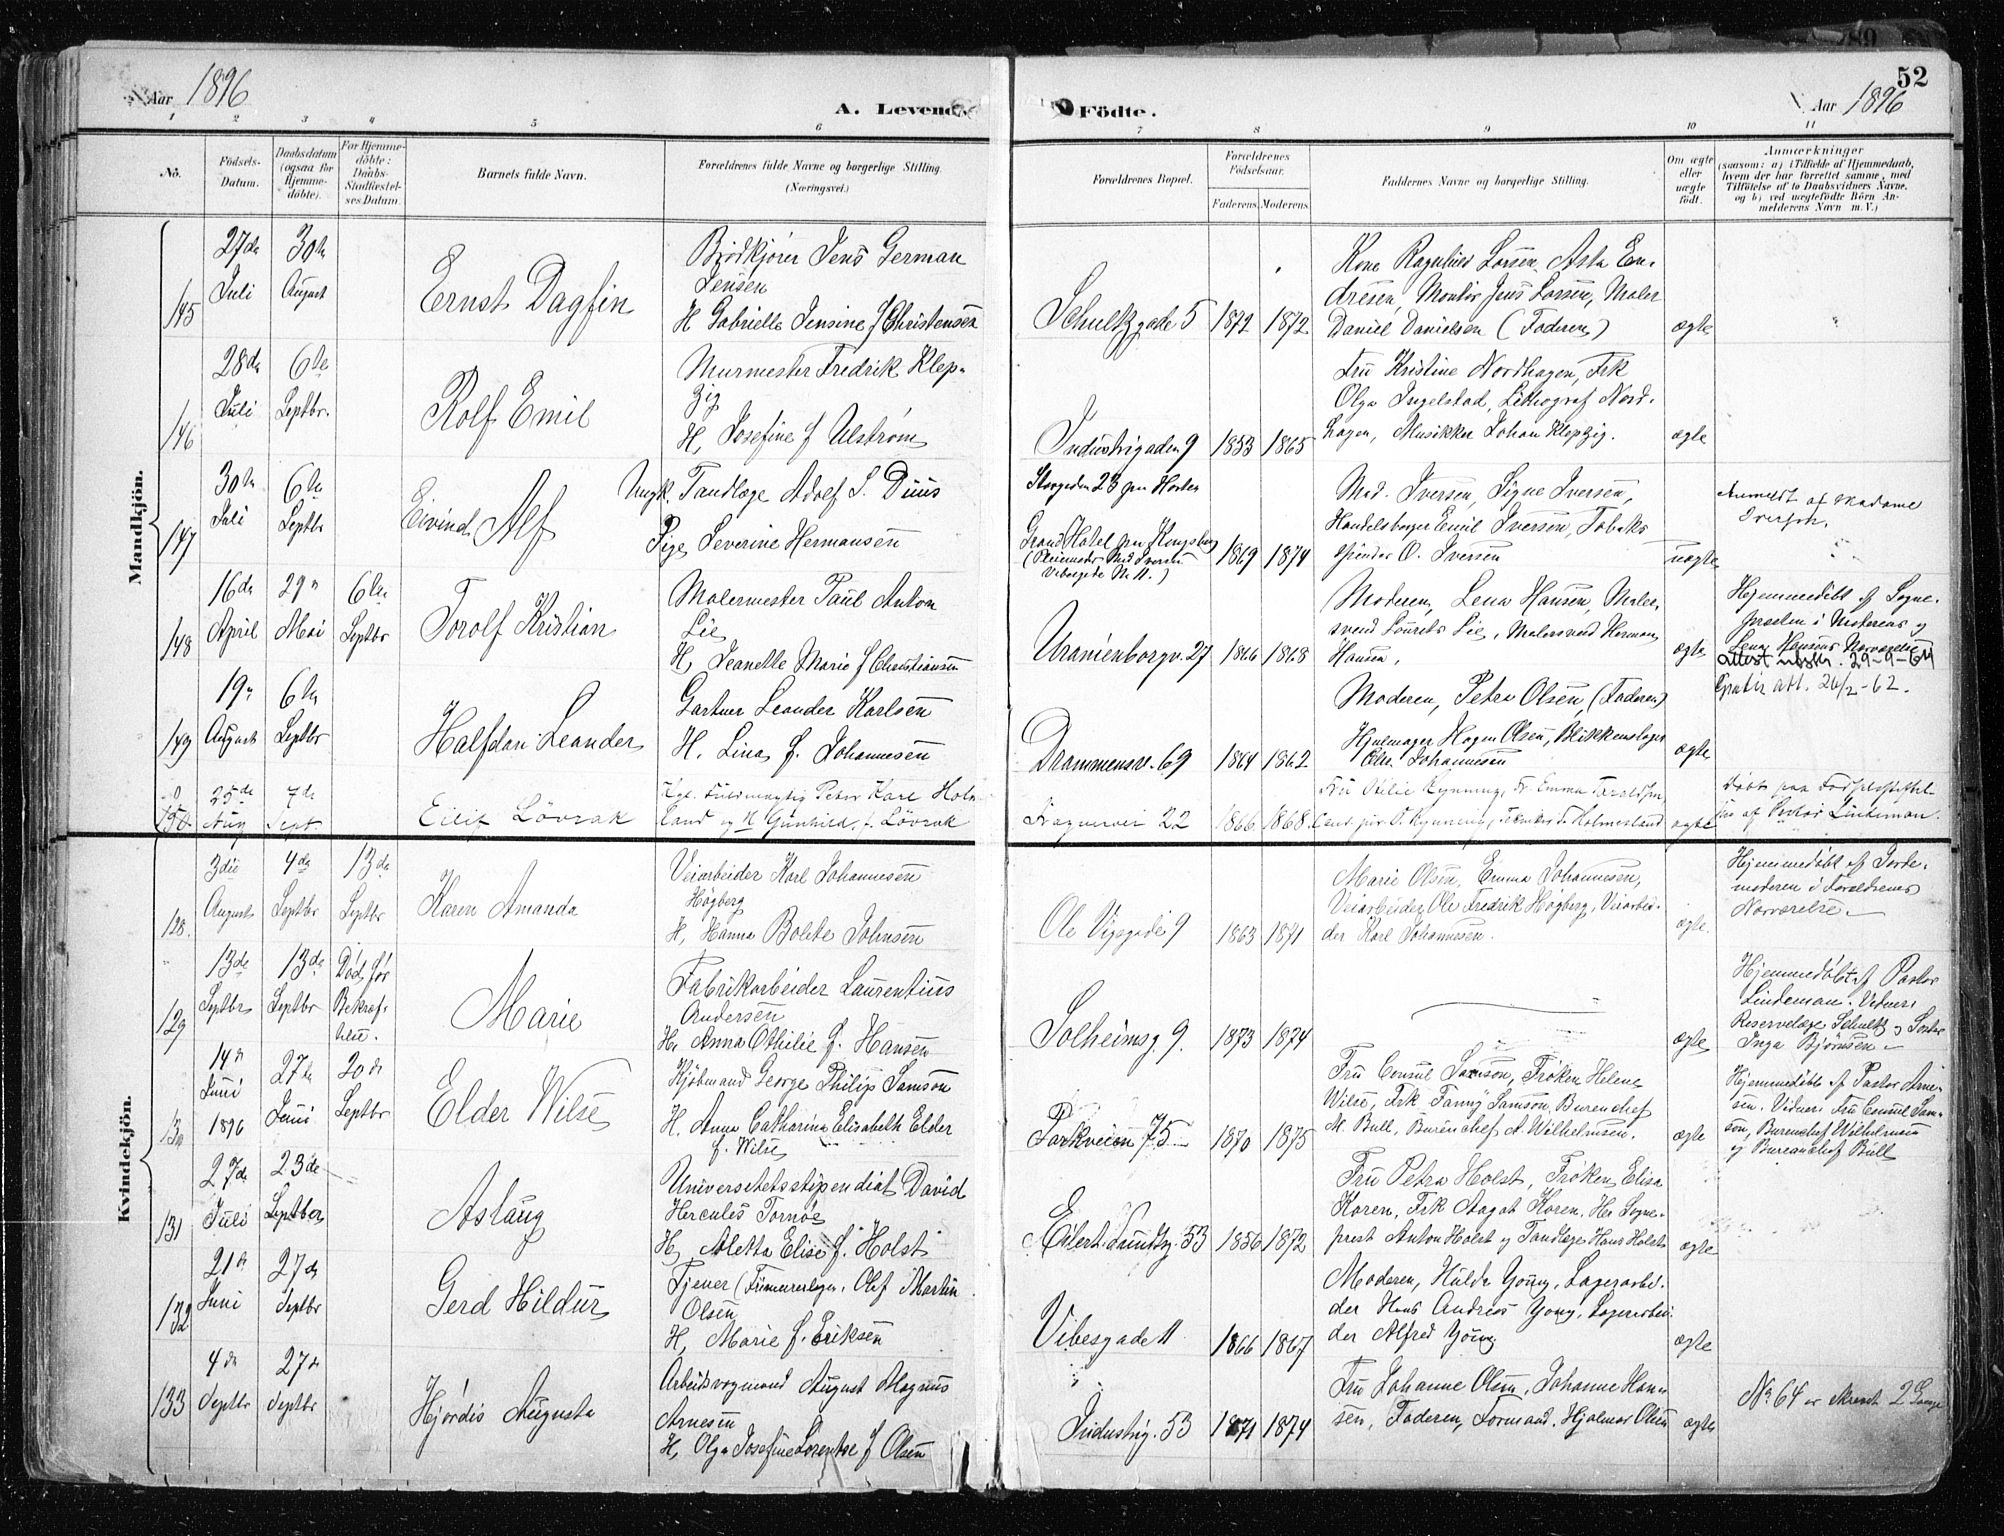 52
Aar 1896
A. Levende Födte.
Aar 1896
1 2 3 4 5 6 7 8 9 10 11
No.
Födsels-
Datum.
Daabsdatum
(ogsaa for
Hjemme-
döbte).
For Hjemme-
döbte:
Daabs-
Stadfæstel-
ses Datum.
Barnets fulde Navn.
Forældrenes fulde Navne og borgerlige Stilling
(Næringsvei.)
Forældrenes Bopæl.
Forældrenes
Födselsaar.
Faderens. Moderens.
Faddernes Navne og borgerlige Stilling.
Om ægte
eller
uægte
födt.
Anmærkninger
(saasom: a) i Tilfælde af Hjemmedaab,
hvem der har forrettet samme, med
Tilföielse af to Daabsvidners Navne.
og b) ved uægtefödte Börn An-
melderens Navn m. V.)
Mandkjön.
145
27de
Juli
30te
August
Ernst Dagfin
Brödkjører Jens German
Jensen
H Gabrielle Jensine f Christensen
Schultzgade 5
1872
1872
Kone Ragnhild Larsen, Asta En-
dresen, Montør Jens Larsen, Maler
Daniel Danielsen (Faderen)
ægte
146
28de
Juli
6te
Septbr.
Rolf Emil
Murmester Fredrik Klep-
zig
H, Josefine f Ulstrøm
Industrigaden 9
1853
1865
Fru Kristine Nordhagen, Frk
Olga Ingelstad, Lithograf Nord-
hagen, Musikker Johan Klepzig.
ægte
147
30te
Juli
6te
Septbr
Eivind Alf
Ungk. Tandlæge Adolf S. Duus
Pige Severine Hermansen
Storgaden 23 pr Horten
Grand Hotel pr Kongsberg
(Pleiemoder Mad Iversen
Vibesgade No 11.)
1869
1874
Mad. Iversen, Signe Iversen,
Handelsborger Emil Iversen, Tobaks
spinder O. Iversen
uægte
Anmeldt af Madame
Iversen.
148
16de
April
29de
Mai
6te
Septbr
Torolf Kristian
Malermester Paul Anton
Lie
H, Jeanette Marie f Christiansen
Uranienborgv. 27
1866
1868
Moderen, Lena Hansen, Maler-
svend Lourits Lie, Malersvend Herman
Hansen.
ægte
Hjemmedöbt af Sogne-
presten i Moderens og
Lena Hansens Nærværelse
attest utstr. 29-9-64
149
19de
August
6te
Septbr
Halfdan Leander
Gartner Leander Karlsen
H. Lina f. Johannesen
Drammensv. 69
1864
1862
Moderen, Petra Olsen, (Faderen)
Hjulmager Hagen Olsen, Blikkenslager
Chr. Johannesen
ægte
Gratis att. 20/2-62.
150
25de
Aug
7de
Sept
Eilif Lövrak
Kgl. Fuldmægtig Peter Karl Holm-
land og H Gunhild, f. Lövrak
Frognervei 22
1866
1868
ægte
Döbt paa Födselsstiftel-
sen af Pastor Lindeman.
Kvindekjön.
128.
3die
August
4de
Septbr
13de
Septbr
Karen Amanda
Veiarbeider Karl Johannesen
Högberg
H, Hanna Bolete Johnsen
Ole Vigsgade 9
1863
1871
Marie Olsen, Emma Johannesen,
Veiarbeider Ole Fredrik Högberg, Veiarbei-
der Karl Johannesen.
ægte.
Hjemmedöbt af Jorde-
moderen i Foreldrenes
Nærværelse.
129
13de
Septbr
13de
Septbr
Död før
Bekræf-
telse.
Marie
Fabrikarbeider Laurentius
Andersen
H, Anna Othilie f. Hansen
Solheimsg. 9.
1873
1874
ægte
Hjemmedöbt af Pastor
Lindeman. Vidner:
Reservelæge Schultz og Søster
Inga Bjørnsen
130
14de
Juni
1896
27de
Juni
20de
Septbr
Elder Wilse
Kjöbmand George Philip Samson
H. Anna Catharina Elisabeth Elder
f. Wilse
Parkveien 75
1870
1875
Fru Consul Samson, Frøken Helene
Wilse, Frk Fanny Samson, Bureuchef
M. Bull, Bureuchef A. Wilhelmsen.
ægte
Hjemmedöbt af Pastor Arne-
sen. Vidner: Fru Consul Sam-
son, Bureuchef Wilhelmsen
og Bureauchef Bull
131
27de
Juli
23de
Septber
Aslaug
Universitetsstipendiat David
Hercules Tornöe
H, Aletta Elise f. Holst
Eilert Sundtsg. 53
1856
1872
Fru Petra Holst, Frøken Elisa
Koren, Frk Aagot Koren, Hr Sogne-
prest Anton Holst og Tandlæge Hans Holst
ægte
132
21de
Juni
27de
Septbr
Gerd Hildur
Tjener (Frimurerlogen, Olaf Martin
Olsen
H, Marie f. Eriksen
Vibesgade 11
1866
1867
Moderen, Hulda Young, Lagerarbei-
der Hans Andreas Young, Lagerarbei-
der Alfred Young
ægte
133
4de
Septbr
27de
Septbr
Hjördis Augusta
Arbeidsvogmand August Magnus
Arnesen
H, Olga Josefine Lorentze f Olsen
Industrig. 53
1871
1874
Fru Johanne Olsen, Johanne Han-
sen, Faderen, Formand Hjalmar Olsen
ægte
No 64 er skrevet 2 Gange